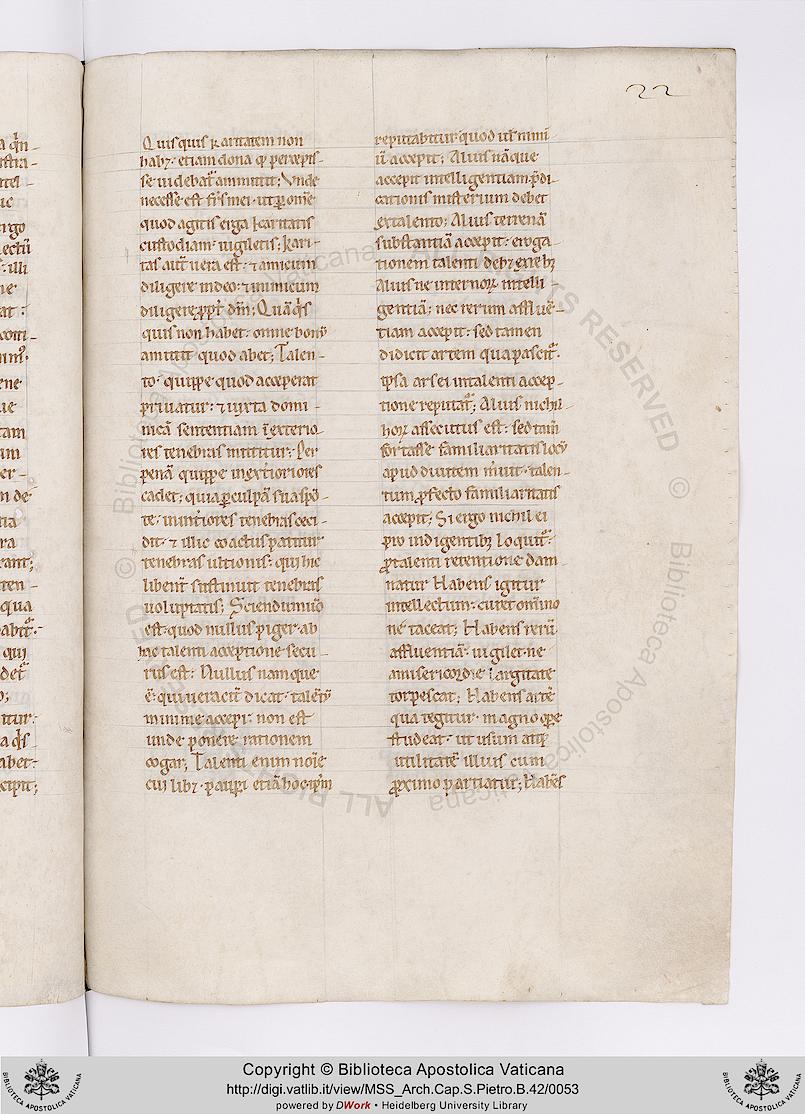 22
Quisquis karitatem non
habꝫ· etiam dona q̨ percepis-
se uidebat᷑ ammittit; Unde
necesse est fr̄s mei· ut ꝑ om̄e
quod agitis erga karitatis
custodiam· uigiletis; Kari-
tas aut̄ uera est· ⁊ amicum
diligere in deo· ⁊ inimicum
diligere ꝓpt̄ dm̄; Quā q̇s
quis non habet· omne bonū
amittit quod abet; Talen-
to· quippe quod acceperat
priuatur· ⁊ iuxta domi-
nicā sententiam in exterio-
res tenebras mittitur; Per
penā quippe in exteriores
cadet; quia ꝑ culpā sua spō-
te· in int̄iores tenebras ceci-
dit· ⁊ illic coactus patitur
tenebras ultionis· qui hic
libent̄ sustinuit tenebras
uoluptatis; Sciendum ū̊
est· quod nullus piger· ab
hac talenti acceptione secu-
rus est; Nullus namque
ē· qui ueracit̄ dicat· talentū
minime accepi· non est
unde ponere rationem
cogar; Talenti enim noīe
cui libꝫ· pauꝑi etiā hoc ipm̄
reputabitur quod ut̄ mini
mū accepit; Alius nāque
accepit intelligentiam p̄di
cationis misterium debet
ex talento; Alius terrenā
substantiā accepit· eroga
tionem talenti debꝫ ex rebꝫ
Alius ne internoꝝ intelli-
gentiā; nec rerum affluē-
tiam accepit· sed tamen
didicit artem qua pascit᷑·
ipsa ars ei in talenti accep-
tione reputat᷑; Alius nichil
hoꝝ assecutus est· sed tam̄
fortasse familiaritatis locū
apud diuitem m̄uit· talen-
tum ꝓfecto familiaritatis
accepit; Si ergo nichil ei
pro indigentibꝫ loquit᷑·
ꝓ talenti retentione dam-
natur Habens igitur
intellectum· curet om̄ino
ne taceat; Habens rerū
affluentiā· uigilet· ne
a misericordie largitate
torpescat; Habens artē
qua regitur· magnoꝑe
studeat· ut usum atq;
utilitatē illius cum
ꝓximo partiatur; Habēs
Copyright © Biblioteca Apostolica Vaticana
http://digi.vatlib.it/view/MSS_Arch.Cap.S.Pietro.B.42/0053
powered by DWork • Heidelberg University Library